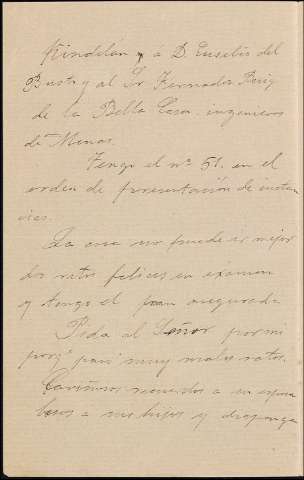 Kindelán y á D. Eusebio del
Busto y al Sr Fernando Puig
de la Bella Casa ingenieros
de Minas.
Tengo el nº 51. en el
orden de presentación de instan
cias.
La cosa no puede ir mejor
dos ratos felices en examen
y tengo el pan asegurado
Pida al Señor por mi
porq̃ pasé muy malos ratos.
Cariñosos recuerdos a su esposa
besos a sus hijos y disponga